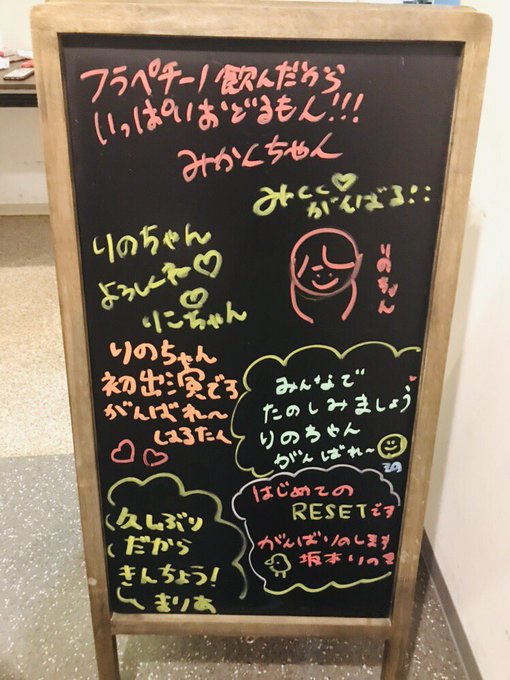 フラペチーノ飲んだから
いっぱいおどるもん!!!
みかんちゃん
がんばる!!
りのちゃん
よろしくね♡
りこちゃん
りのちゃん
りのちゃん
初出演でる
がんばれ〜
はるたん
みんなで
たのしみましょう
りのちゃん
がんばれ〜
久しぶり
だから
きんちょう!
まりあ
はじめての
RESETです
がんばりのします
坂本りの